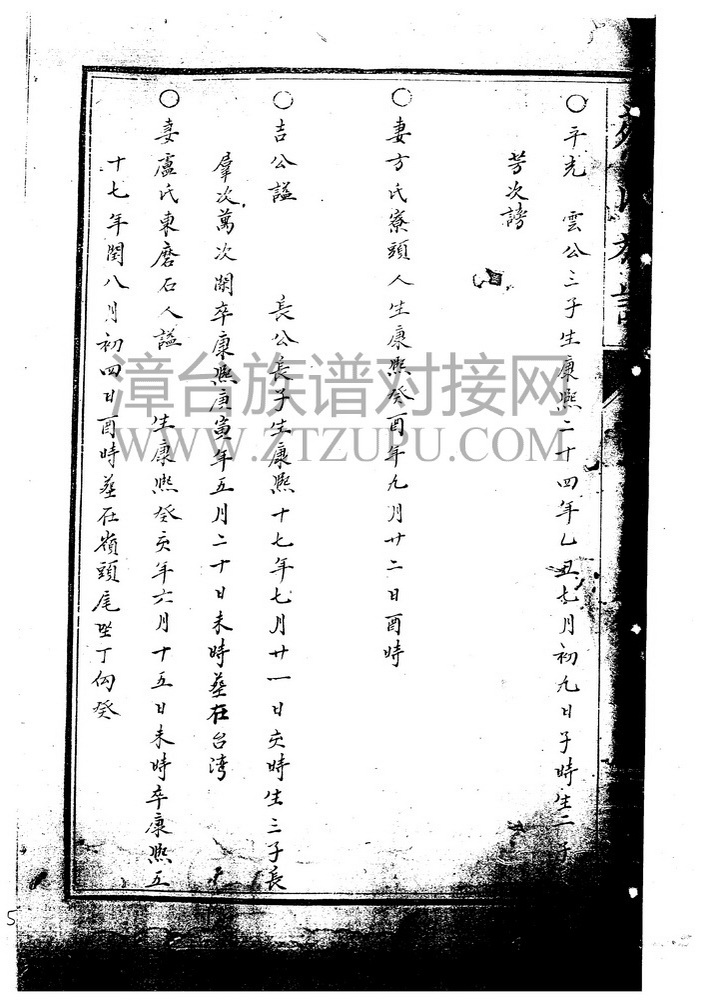 〇平光　雲公三子生康熙二十四年乙丑七月初九日子時生二子
芳次謗
〇妻方氏寮頭人生康熙癸酉年九月廿二日酉時
〇吉公謚　長公長子生康熙十七年七月廿一日亥時生三子長
羣次萬次閑卒康熙庚寅年五月二十日未時葬在台湾
〇妻盧氏東磨石人謚　生康熙癸亥年六月十五日未時卒康熙五
十七年閏八月初四日酉時葬在嶺頭尾坐丁向癸
漳台族谱对接网
WWW.ZTZUPU.COM
5